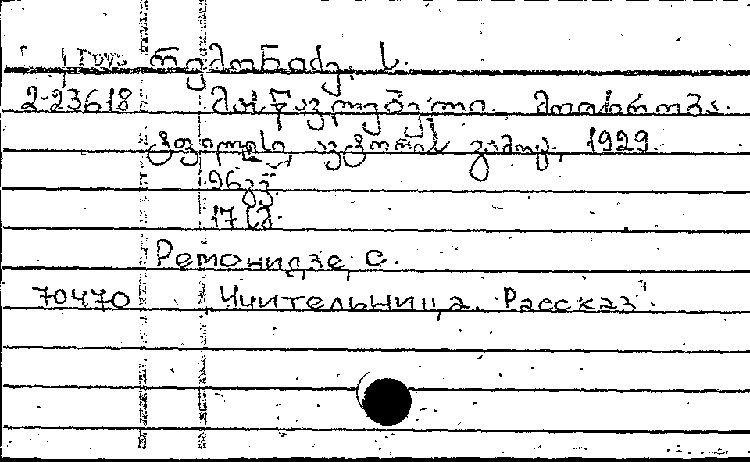 რემონიძე, ს.
2-23618 მასწავლებელი. მოთხრობა.
ტფილისი, ავტორის გამოც., 1929.
96 გვ.
17 სმ.
Ремонидзе, С.
70470 Учительница. Рассказ.